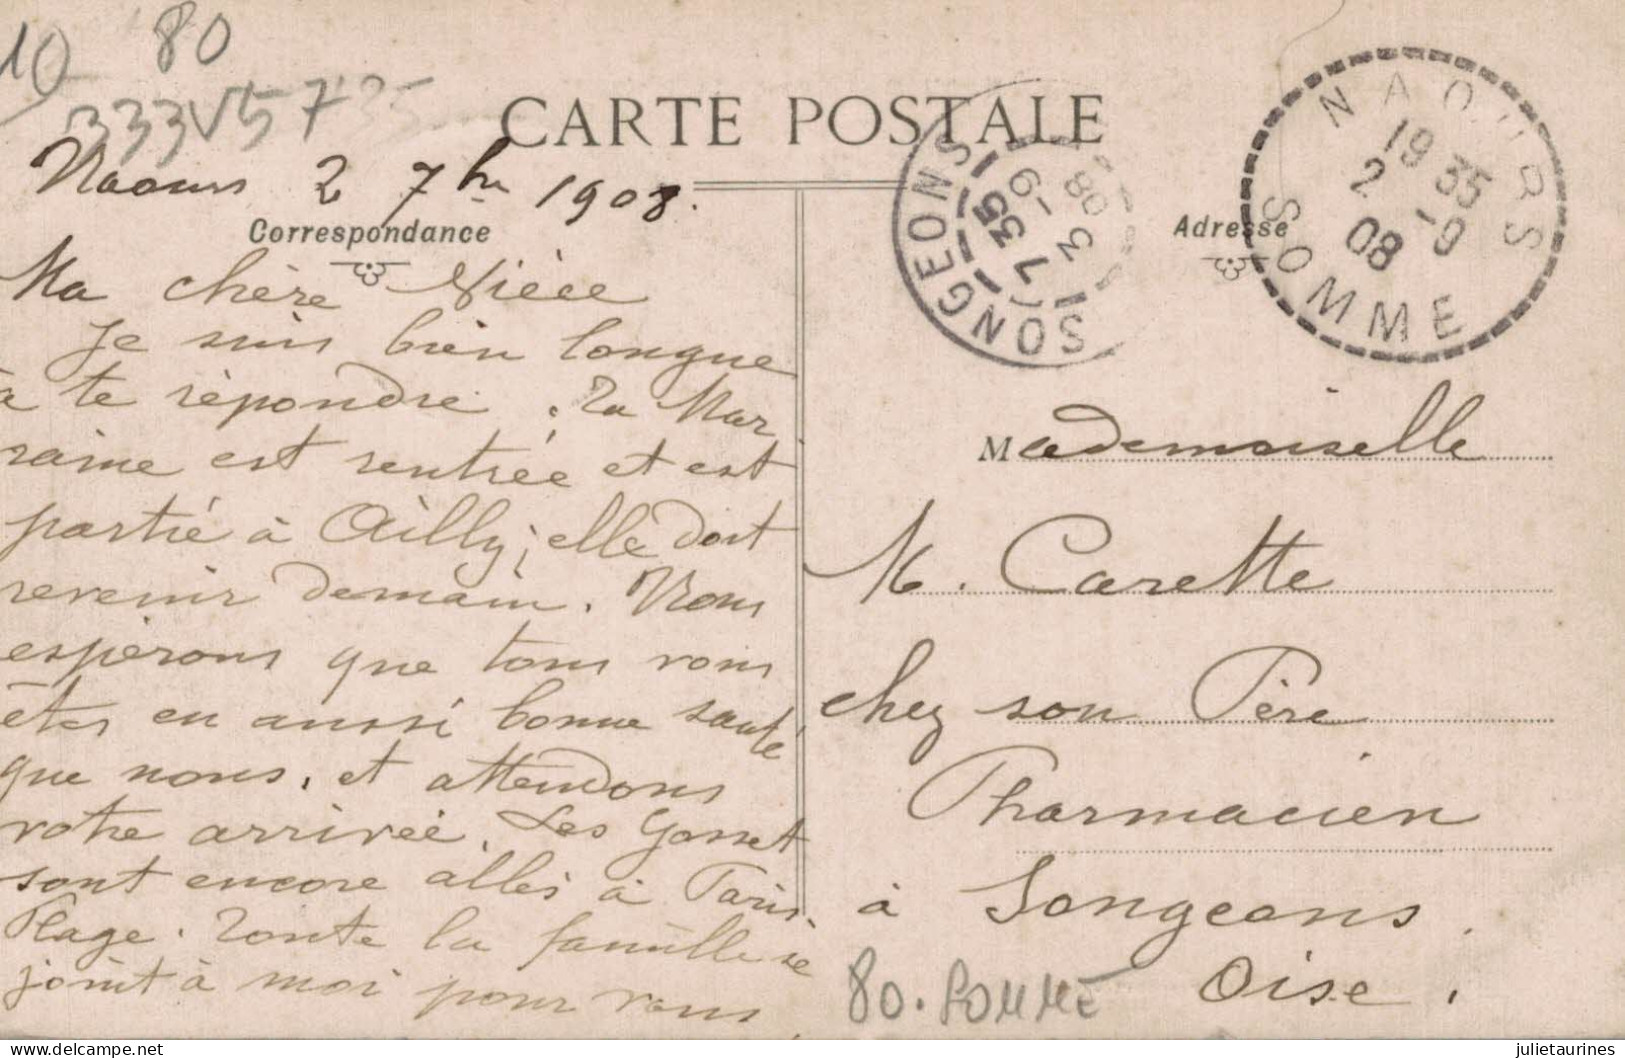 10 80
333V5735
CARTE POSTALE
Naours 2 7bre 1908.
Correspondance
Adresse
NAOURS
19 35
2 -9
08
SOMME
SONGEONS
7 35
3 -9
08
Ma chère Nièce
Je suis bien longue
à te répondre. Ta Mar
raine est rentrée et est
partie à Ailly; elle doit
revenir demain. Nous
espérons que tous vous
êtes en aussi bonne santé
que nous, et attendons
votre arrivée. Les Gosset
sont encore allés à Paris-
Plage. Toute la famille se
joint à moi pour vous
Mademoiselle
M. Carette
chez son Père
Pharmacien
à Songeons.
Oise.
80. SOMME
delcampe.net
julietaurines